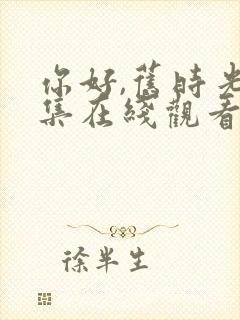 你好,舊時光
集在綫觀看
徐半生